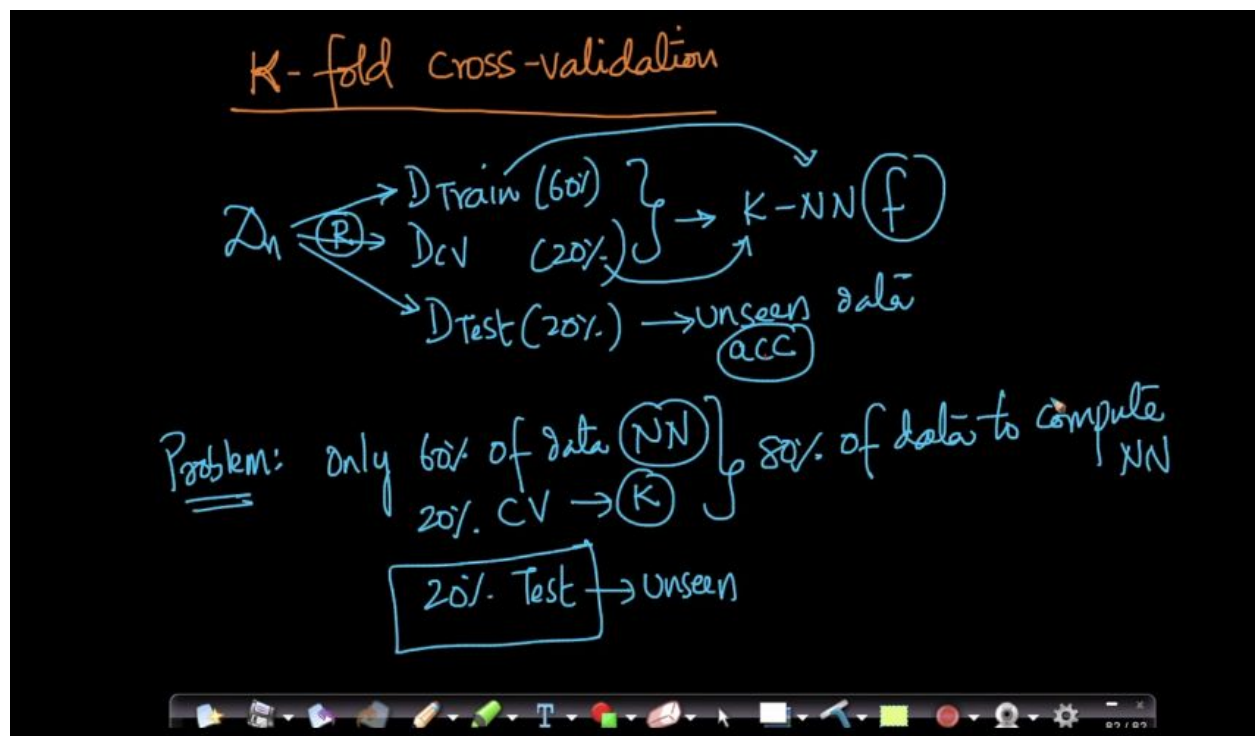 K-fold cross-validation
Dn
R
DTrain (60%)
DCV (20%)
K-NN f
DTest (20%) → unseen data
acc
Problem: only 60% of data NN
20%. CV → K
80%. of data to compute
NN
20%. Test → unseen
T
82/82